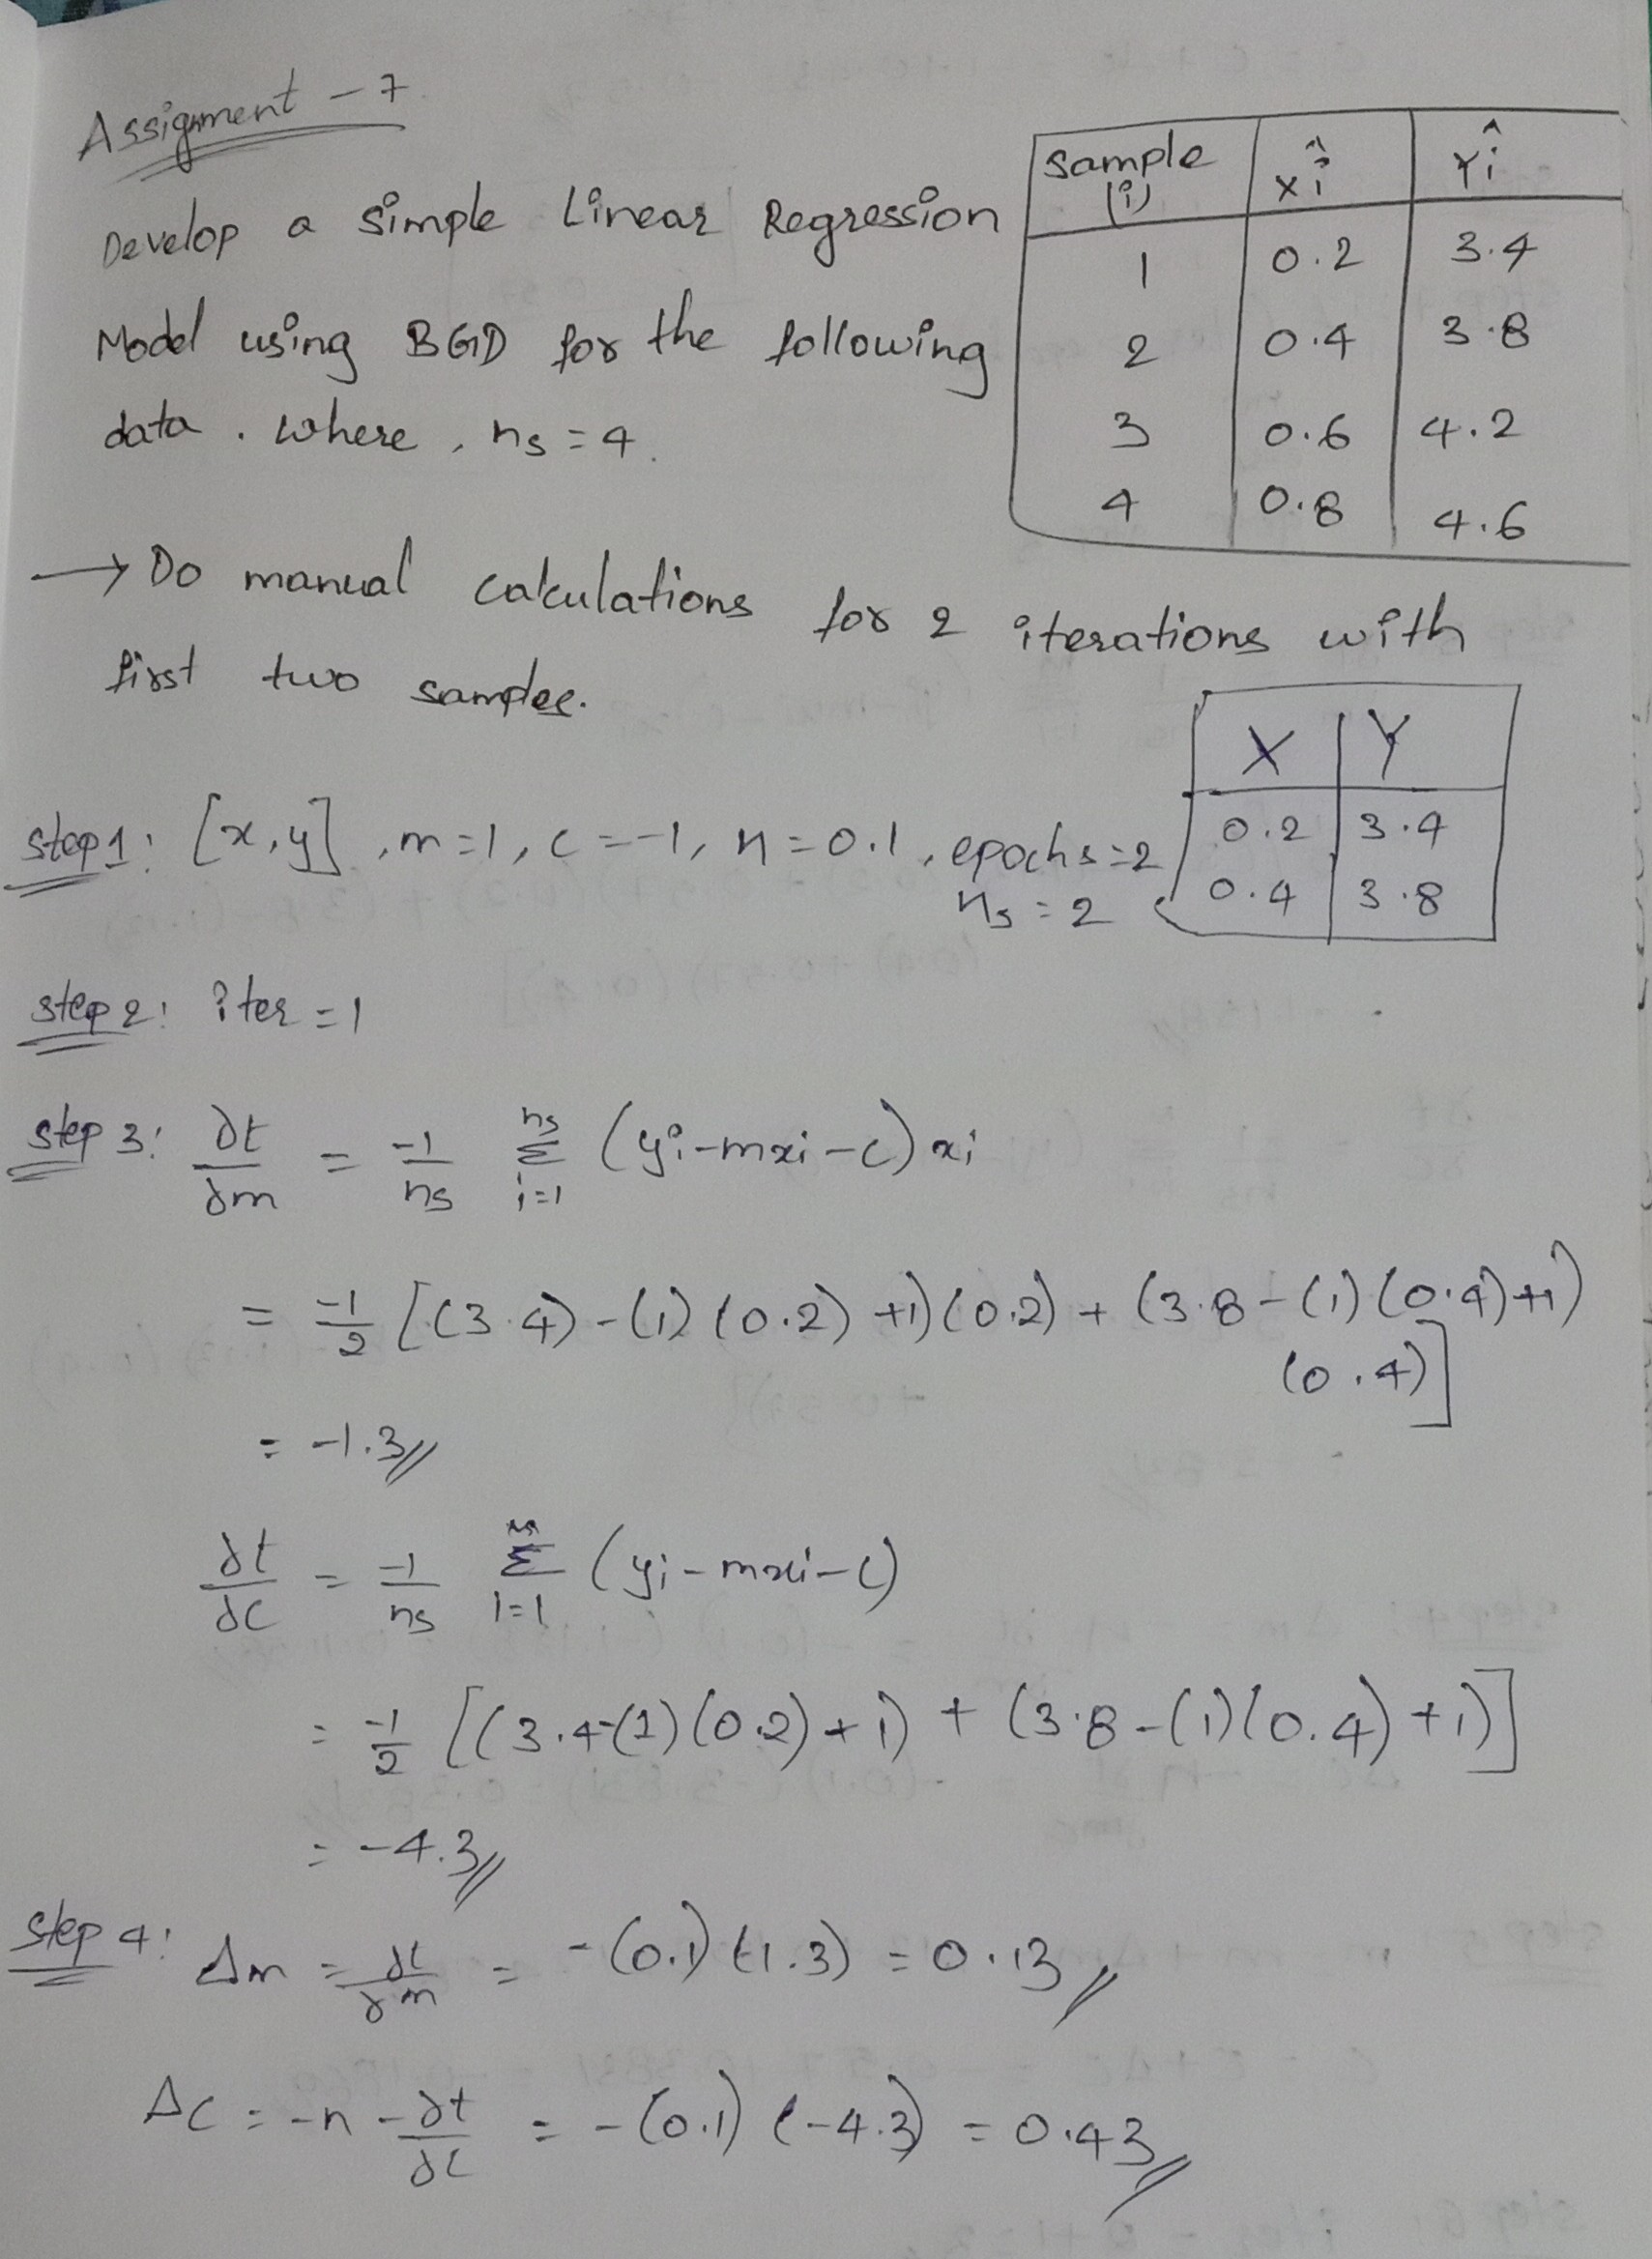 Assignment - 7
Develop a simple Linear Regression
Model using BGD for the following
data. where, ns = 4.
sample (i) | xi^ | Yi^
1 | 0.2 | 3.4
2 | 0.4 | 3.8
3 | 0.6 | 4.2
4 | 0.8 | 4.6
→ Do manual calculations for 2 iterations with
first two samples.
X | Y
0.2 | 3.4
0.4 | 3.8
step 1: [x,y], m=1, c=-1, η=0.1, epochs=2
ns = 2
step 2: iter = 1
step 3: ∂t/∂m = -1/ns Σ i=1 ns (yi-mxi-c) xi
= -1/2 [(3.4)-(1)(0.2)+1)(0.2) + (3.8-(1)(0.4)+1)
(0.4)]
= -1.3//
∂t/∂c = -1/ns Σ i=1 ns (yi-mxi-c)
= -1/2 [(3.4-(1)(0.2)+1) + (3.8-(1)(0.4)+1)]
= -4.3//
step 4: Δm = ∂t/∂m = -(0.1)(-1.3) = 0.13//
Δc = -n - ∂t/∂c = -(0.1)(-4.3) = 0.43//